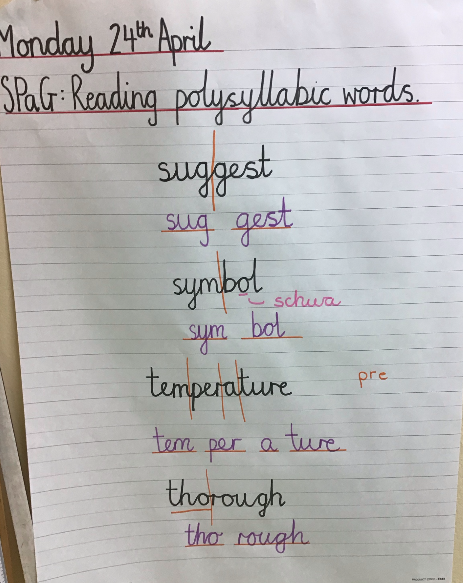 Monday 24th April
SPaG: Reading polysyllabic words.
suggest
sug gest
symbol
schwa
sym bol
temperature
pre
tem per a ture
thorough
tho rough